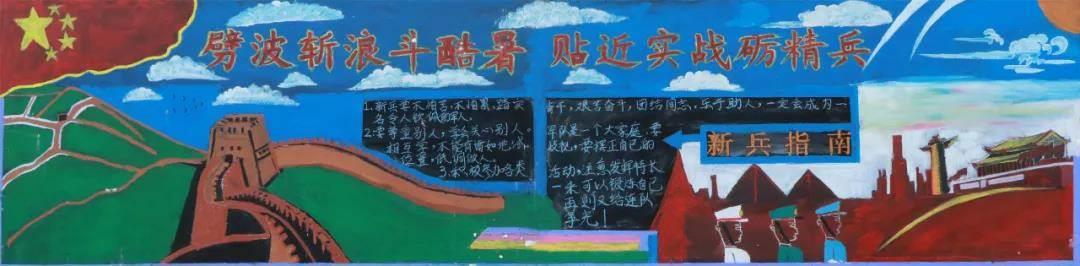 劈波斩浪斗酷暑 贴近实战砺精兵
新兵指南
1.新兵要不怕苦,不怕累,踏实
肯干,艰苦奋斗,团结同志,乐于助人,一定会成为一
名令人钦佩的军人。
2.要尊重别人,学会关心别人。
军队是一个大家庭,要
相互学,不能背后
战友,要摆正自己的
位置,低调做人。
3.积极参加各类
活动,注意发挥特长
一来可以锻炼自己
再则又给连队
争光!